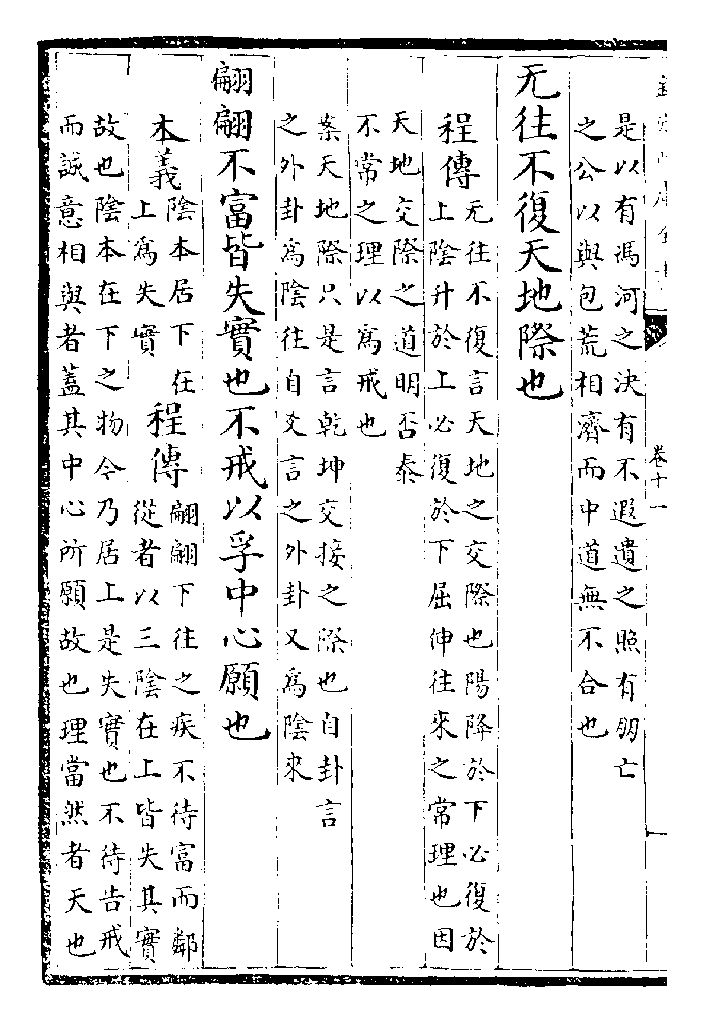 卷十一
是以有馮河之決有不遐遺之照有朋亡
之公以與包荒相濟而中道無不合也
无往不復天地際也
程傳
无往不復言天地之交際也陽降於下必復於
上陰升於上必復於下屈伸往來之常理也因
天地交際之道明否泰
不常之理以為戒也
案天地際只是言乾坤交接之際也自卦言
之外卦為陰往自爻言之外卦又為陰來
翩翩不富皆失實也不戒以孚中心願也
本義
陰本居下在
上為失實
程傳
翩翩下往之疾不待富而鄰
從者以三陰在上皆失其實
故也陰本在下之物今乃居上是失實也不待告戒
而誠意相與者蓋其中心所願故也理當然者天也